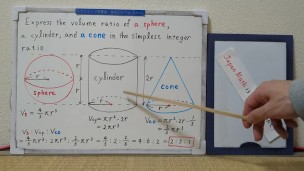 Express the volume ratio of a sphere,
a cylinder, and a cone in the simplest integer
ratio.
r
sphere
r
r
cylinder
2r
r
cone
r
Vs = 4/3 πr³
Vcy = πr²·2r
= 2πr³
Vco = πr²·2r·1/3
= 2/3 πr³
Vs : Vcy : Vco
= 4/3 πr³ : 2πr³ : 2/3 πr³ = 4/3 : 2 : 2/3 = 4 : 6 : 2 = 2 : 3 : 1
Japan Math